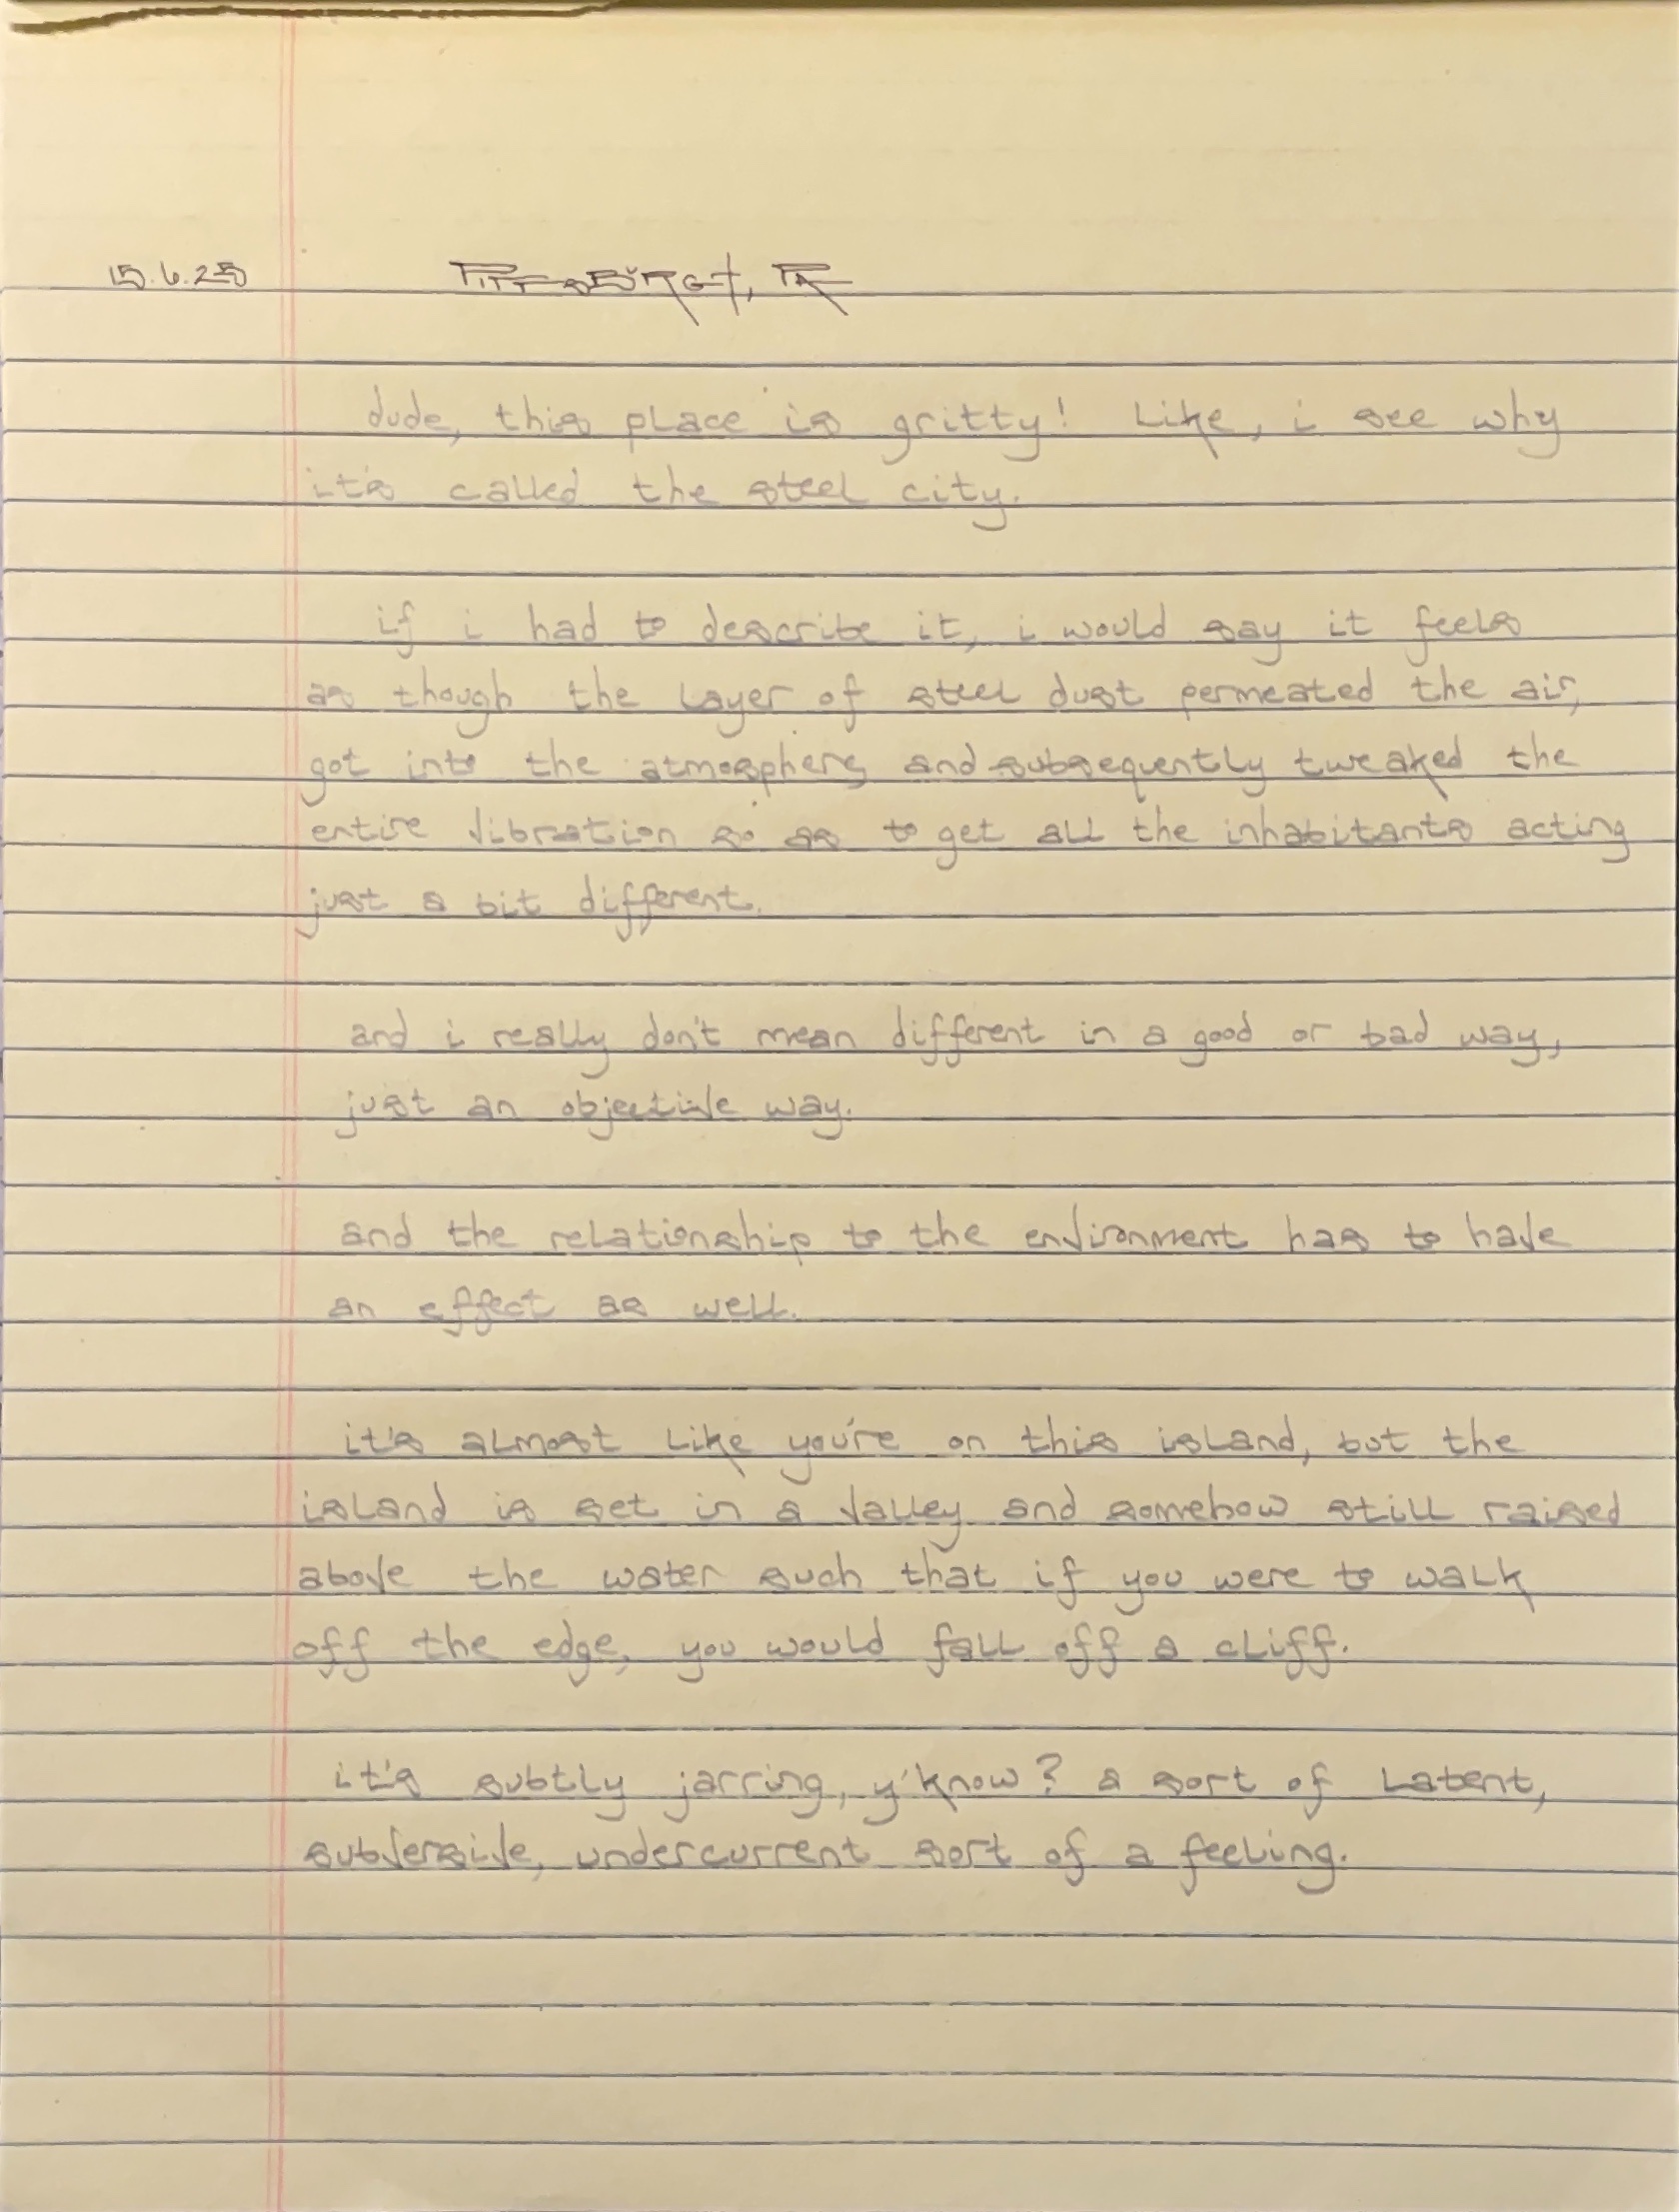 15.6.25 PITTSBURGH, PA
dude, this place is gritty! Like, i see why
it's called the steel city.
if i had to describe it, i would say it feels
as though the layer of steel dust permeated the air,
got into the atmosphere, and subsequently tweaked the
entire vibration so as to get all the inhabitants acting
just a bit different.
and i really don't mean different in a good or bad way,
just an objective way.
and the relationship to the environment has to have
an effect as well.
it's almost like you're on this island, but the
island is set in a valley and somehow still raised
above the water such that if you were to walk
off the edge, you would fall off a cliff.
it's subtly jarring, y'know? a sort of latent,
subversive, undercurrent sort of a feeling.